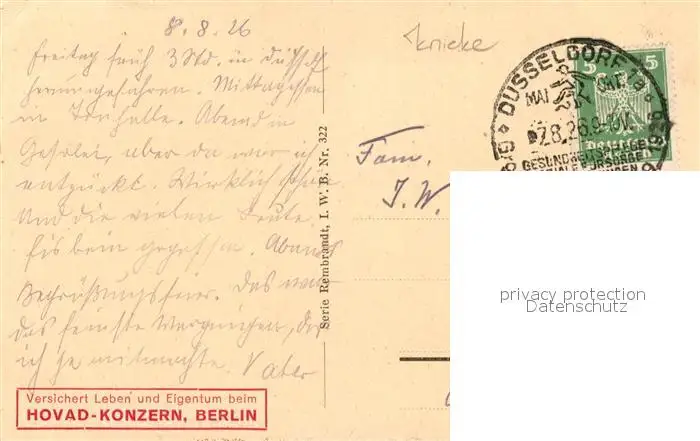 8.8.26
knicke
Freitag früh 3 Std. in Düsseld.
herumgefahren. Mittagessen
in Tonhalle. Abend in
Gesolei, aber da war ich
entzückt. Wirklich schön
und die vielen Leute
Eisbein gegessen. Abends
Begrüßungsfeier. Das war
das feinste Vergnügen, das
ich je mitmachte. Vater
Versichert Leben und Eigentum beim
HOVAD-KONZERN, BERLIN
Serie Rembrandt, I. W. B. Nr. 322
Fam.
J. W.
DÜSSELDORF 1a
MAI OKT
7.8.26.9-10V.
GESUNDHEITSPFLEGE
SOZIALE FÜRSORGE
5 5
privacy protection
Datenschutz